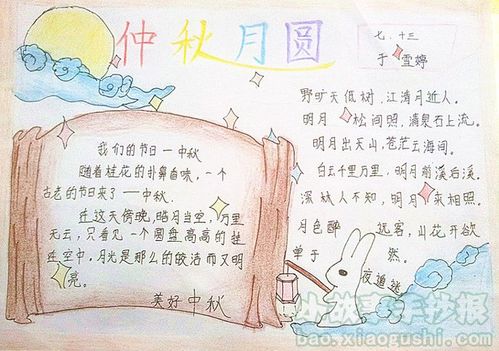 仲秋月圆
七.十三
于雪婷
我们的节日—中秋
随着桂花的扑鼻香味,一个
古老的节日来了——中秋.
在这天傍晚,皓月当空,万里
无云,只看见一个圆盘高高的挂
在空中,月光是那么的皎洁而又明
亮。
美好中秋
野旷天低树,江清月近人。
明月松间照,清泉石上流。
明月出天山,苍茫云海间。
白云千里万里,明月前溪后溪。
深林人不知,明月来相照。
月色醉远客,山花开欲
然。
单于夜遁逃
小故事手抄报
bao.xiaogushi.com